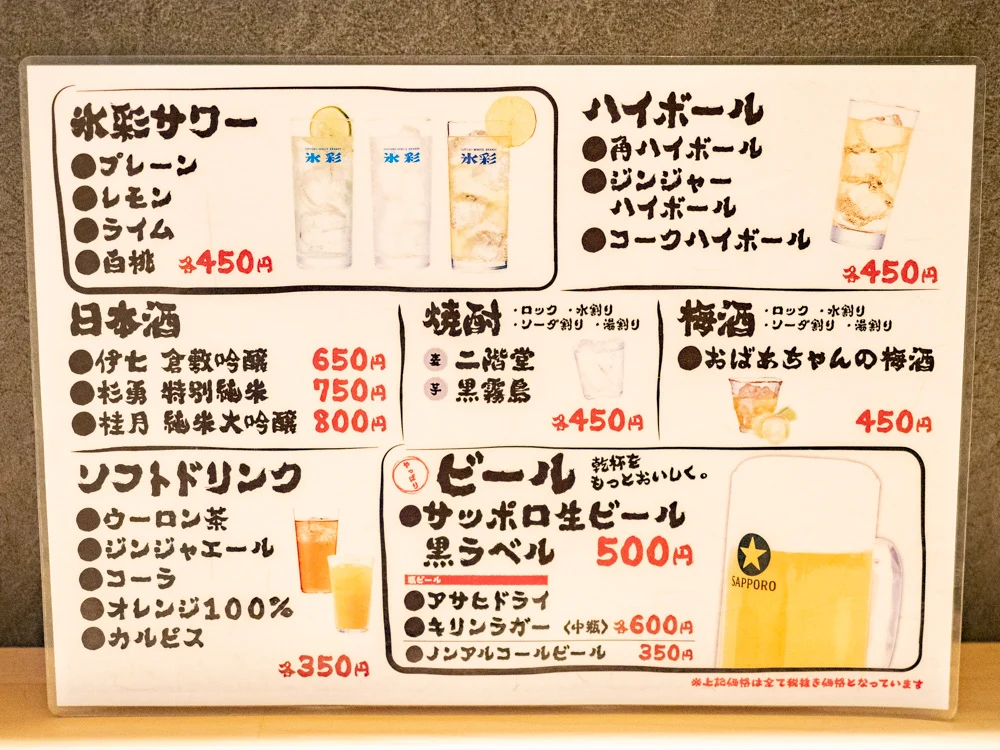 氷彩サワー
●プレーン
●レモン
●ライム
●白桃 各450円
氷彩
氷彩
氷彩
ハイボール
●角ハイボール
●ジンジャー
ハイボール
●コークハイボール
各450円
日本酒
●伊七 倉敷吟醸 650円
●杉勇 特別純米 750円
●桂月 純米大吟醸 800円
焼酎
・ロック ・水割り
・ソーダ割り ・湯割り
麦 二階堂
芋 黒霧島
各450円
梅酒
・ロック ・水割り
・ソーダ割り ・湯割り
●おばあちゃんの梅酒
450円
ソフトドリンク
●ウーロン茶
●ジンジャエール
●コーラ
●オレンジ100%
●カルピス
各350円
やっぱり
ビール
乾杯を
もっとおいしく。
●サッポロ生ビール
黒ラベル 500円
瓶ビール
●アサヒドライ
●キリンラガー 〈中瓶〉各600円
●ノンアルコールビール 350円
SAPPORO
※上記価格は全て税抜き価格となっています